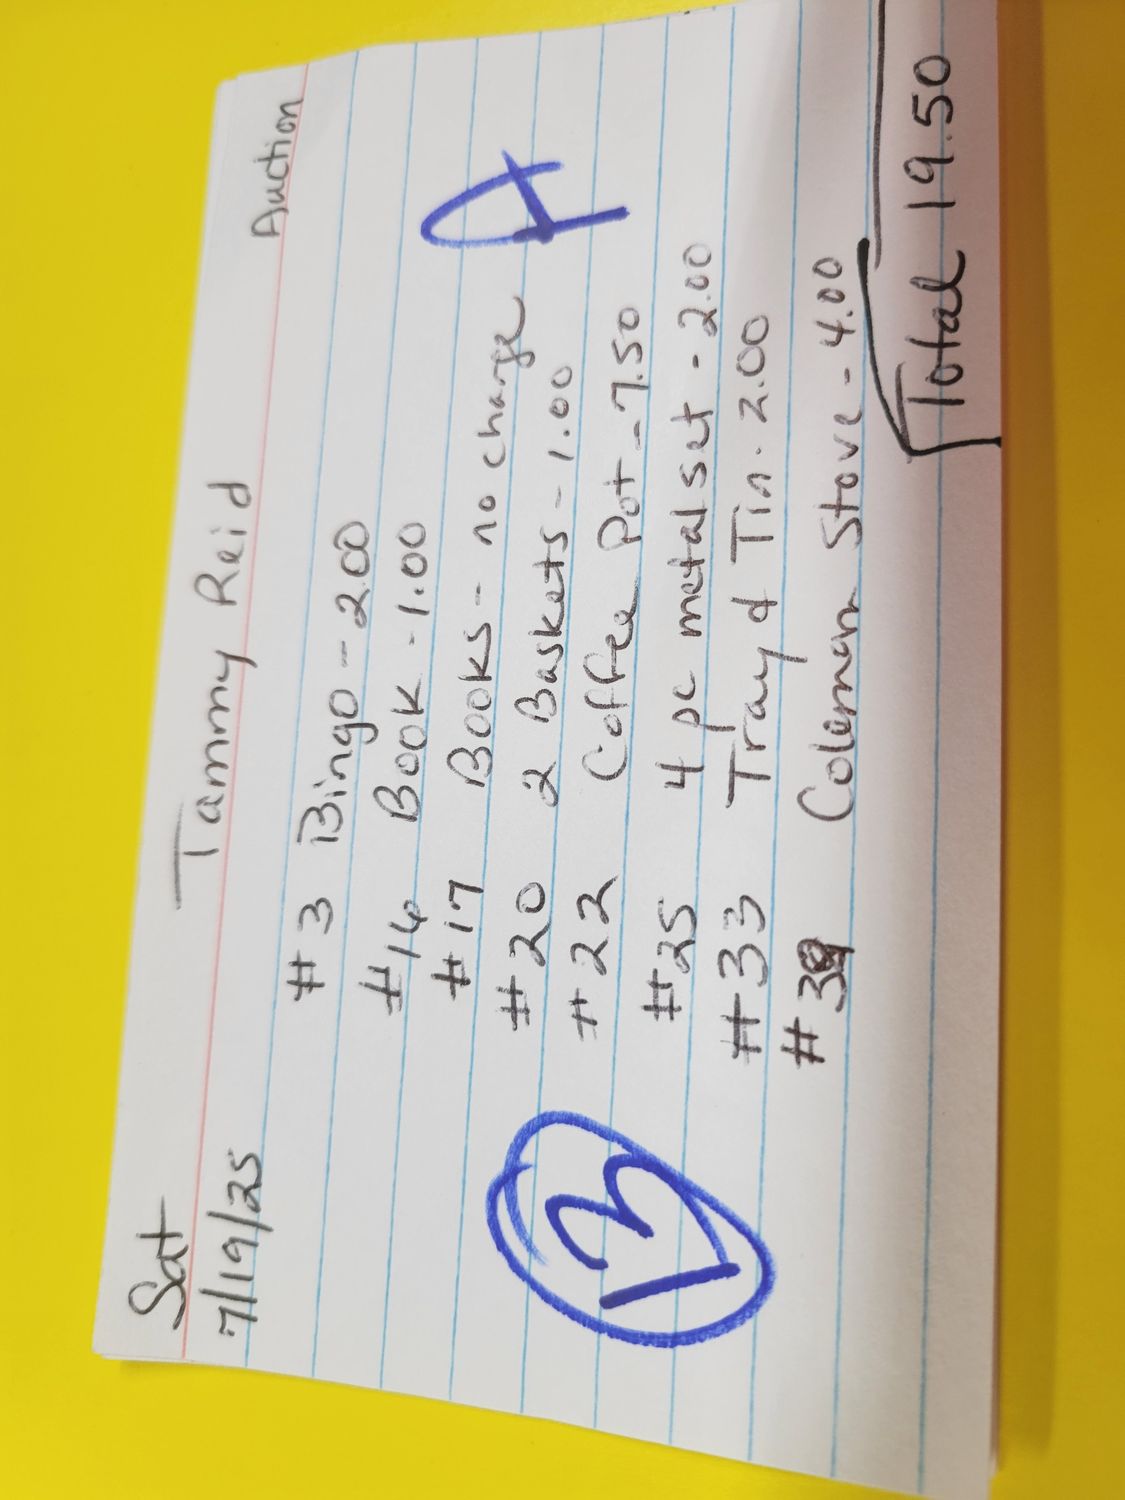 Sat
7/19/25
Tammy Reid
Auction
#3 Bingo - 2.00
#16 Book - 1.00
#17 Books - no charge
#20 2 Baskets - 1.00
#22 Coffee Pot - 7.50
#25 4 pc metal set - 2.00
#33 Tray & Tin - 2.00
#39 Coleman Stove - 4.00
13
Total 19.50